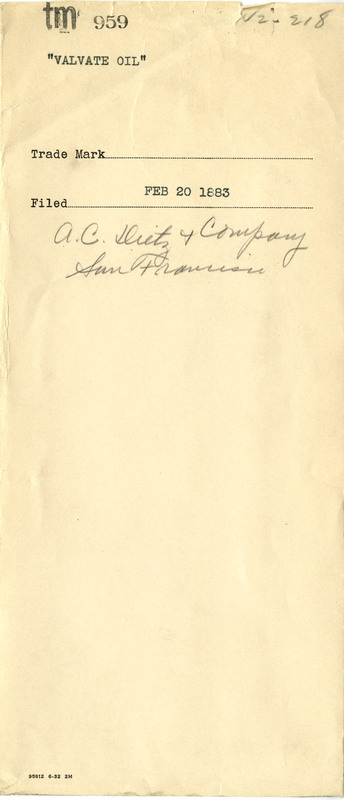 tm 959
"VALVATE OIL"
Trade Mark
FEB 20 1883
Filed
A.C. Dietz & Company
San Francisco
95812 6-32 2M